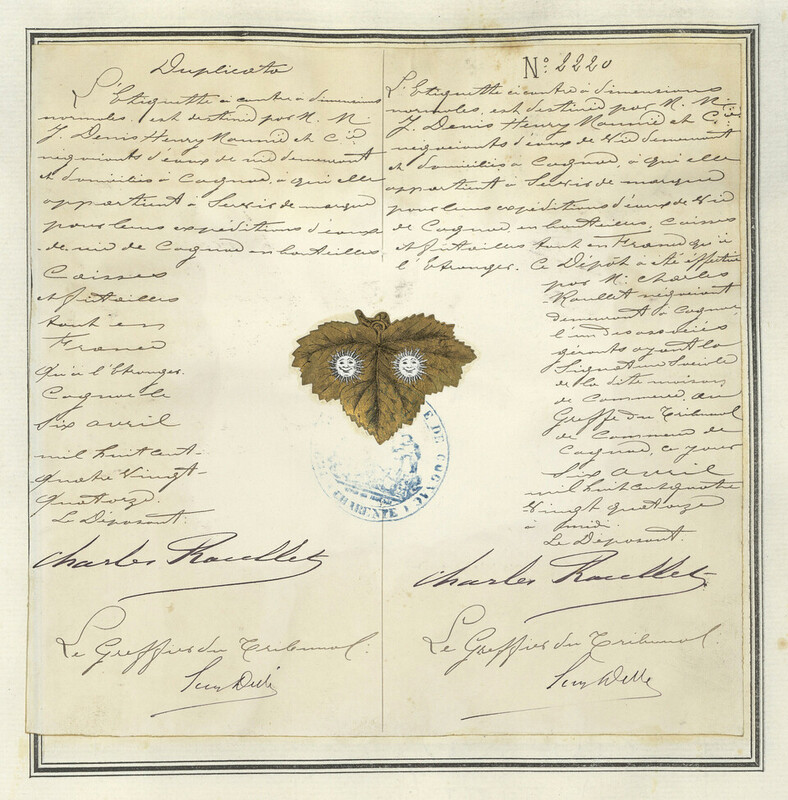 Duplicata
L'Etiquette ci contre à dimensions
normales, est destiné par M. M.
J. Denis Henry Mounié et Cie
négociants d'eaux de vie demeurant
et domiciliés à Cognac, à qui elle
appartient à servir de marque
pour leurs expéditions d'eaux
de vie de Cognac en bouteilles
Caisses
et futailles
tant en
France
qu'à l'étranger.
Cognac le
Six avril
mil huit cent
quatre vingt
quatorze.
Le Déposant.
Charles Roullet
Le Greffier du Tribunal.
No. 2220
L'Etiquette ci contre à dimensions
normales, est destiné par M. M.
J. Denis Henry Mounié et Cie
négociants d'eaux de vie demeurant
et domiciliés à Cognac, à qui elle
appartient à servir de marque
pour leurs expéditions d'eaux de vie
de Cognac en bouteilles, Caisses
et futailles tant en France qu'à
l'étranger. Ce Dépôt a été effectué
par M. Charles
Roullet négociant
demeurant à Cognac
l'un des associés
gérants ayant la
Signature Sociale
de la dite maison
de Commerce, au
Greffe du Tribunal
de Commerce de
Cognac, ce jour
Six avril
mil huit cent quatre
vingt quatorze
à midi.
Le Déposant
Charles Roullet
Le Greffier du Tribunal.
DE COGNAC
CHARENTE